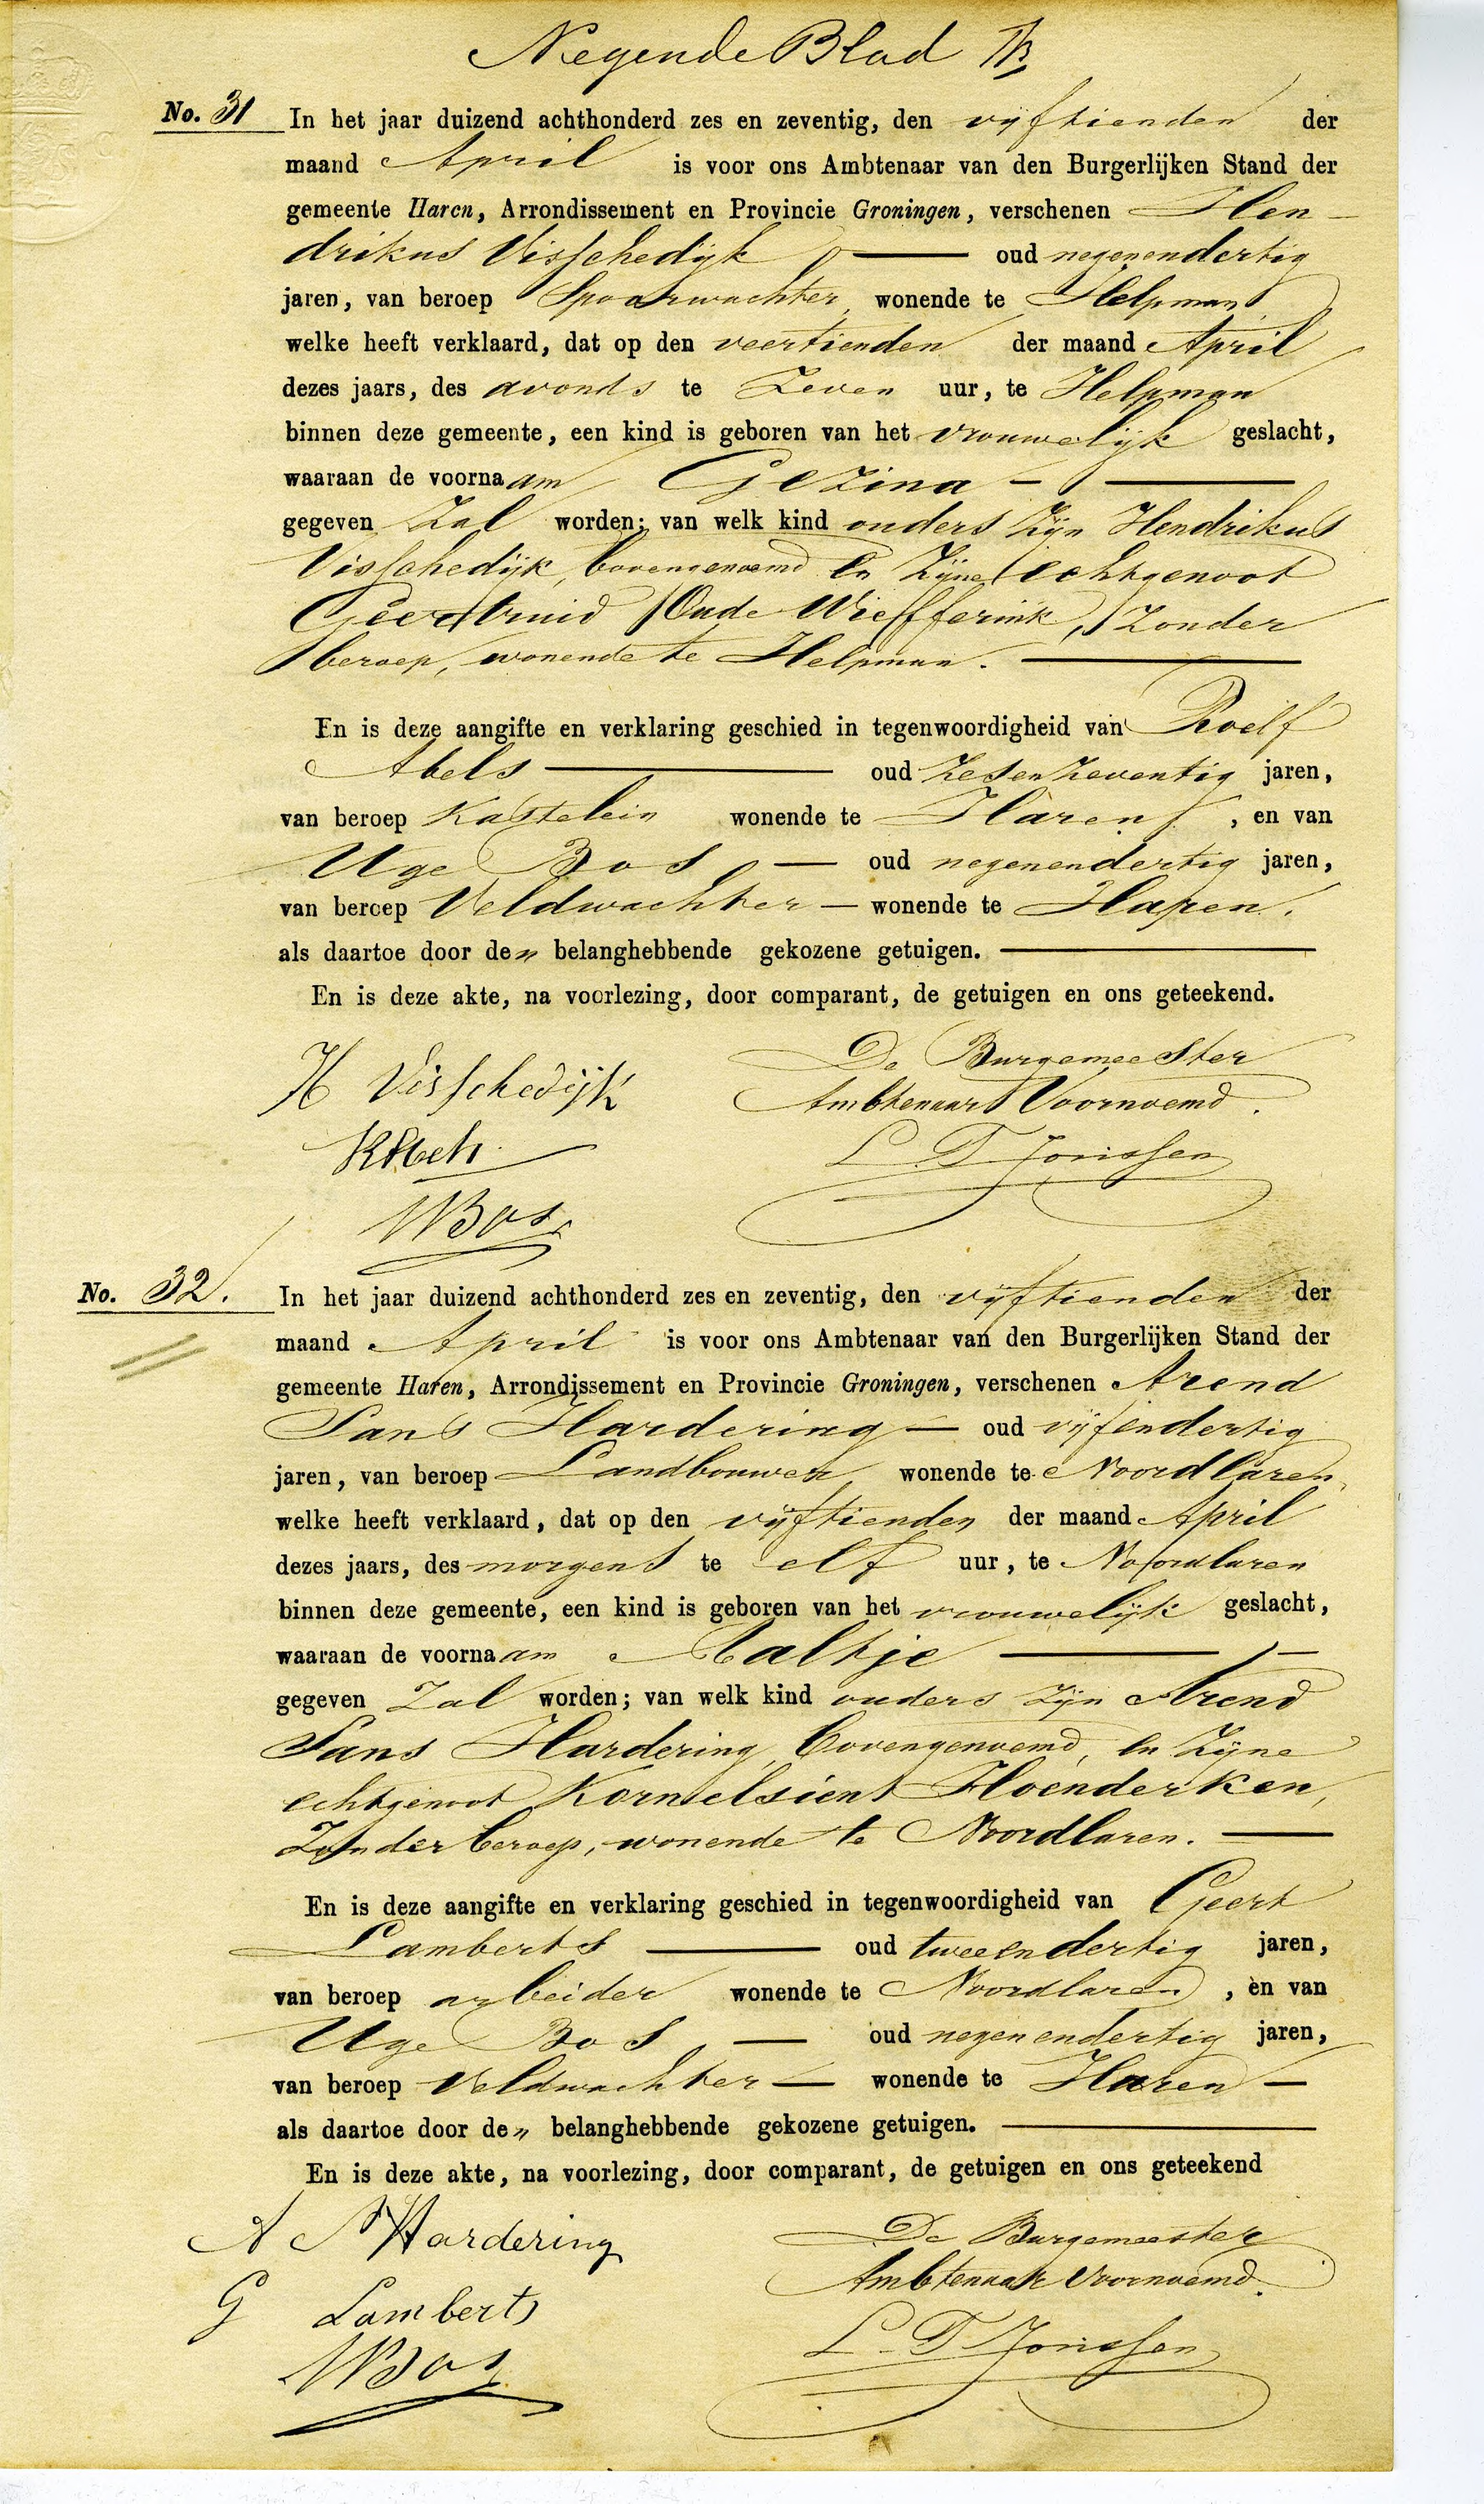 Negende Blad
No. 31 In het jaar duizend achthonderd zes en zeventig, den vijftienden der
maand April is voor ons Ambtenaar van den Burgerlijken Stand der
gemeente Haren, Arrondissement en Provincie Groningen, verschenen Hen-
drikus Visschedijk oud negenendertig
jaren, van beroep Spoorwachter, wonende te Helpman,
welke heeft verklaard, dat op den veertienden der maand April
dezes jaars, des avonds te Zeven uur, te Helpman
binnen deze gemeente, een kind is geboren van het vrouwelijk geslacht,
waaraan de voornaam Gezina
gegeven Zal worden; van welk kind ouders Zijn Hendrikus
Visschedijk, bovengenoemd En Zijne echtgenoot
Geertruid Oude Wiefferink, Zonder
beroep, wonende te Helpman.
En is deze aangifte en verklaring geschied in tegenwoordigheid van Roelf
Abels oud ZesenZeventig jaren,
van beroep Kastelein wonende te Haren, en van
Uge Bos, oud negenendertig jaren,
van beroep Veldwachter wonende te Haren.
als daartoe door de„ belanghebbende gekozene getuigen.
En is deze akte, na voorlezing, door comparant, de getuigen en ons geteekend.
H Visschedijk De Burgemeester
Ambtenaar Voornoemd.
L. T. Jonssen
Bos
No. 32. In het jaar duizend achthonderd zes en zeventig, den vijftienden der
maand April is voor ons Ambtenaar van den Burgerlijken Stand der
gemeente Haren, Arrondissement en Provincie Groningen, verschenen Arend
Sans Hardering oud vijfendertig
jaren, van beroep Landbouwer, wonende te Noordlaren,
welke heeft verklaard, dat op den vijftienden der maand April
dezes jaars, des morgens te elf uur, te Noordlaren
binnen deze gemeente, een kind is geboren van het vrouwelijk geslacht,
waaraan de voornaam Aaltje
gegeven Zal worden; van welk kind ouders Zijn Arend
Sans Hardering, bovengenoemd, En Zijne
echtgenoot Kornelsient Hoenderken,
Zonder beroep, wonende te Noordlaren.
En is deze aangifte en verklaring geschied in tegenwoordigheid van Geert
Lamberts oud tweeendertig jaren,
van beroep arbeider wonende te Noordlaren, en van
Uge Bos, oud negenendertig jaren,
van beroep Veldwachter wonende te Haren
als daartoe door de„ belanghebbende gekozene getuigen.
En is deze akte, na voorlezing, door comparant, de getuigen en ons geteekend
A S Hardering De Burgemeester
Ambtenaar Voornoemd.
G Lamberts
L. T. Jonssen
Bos